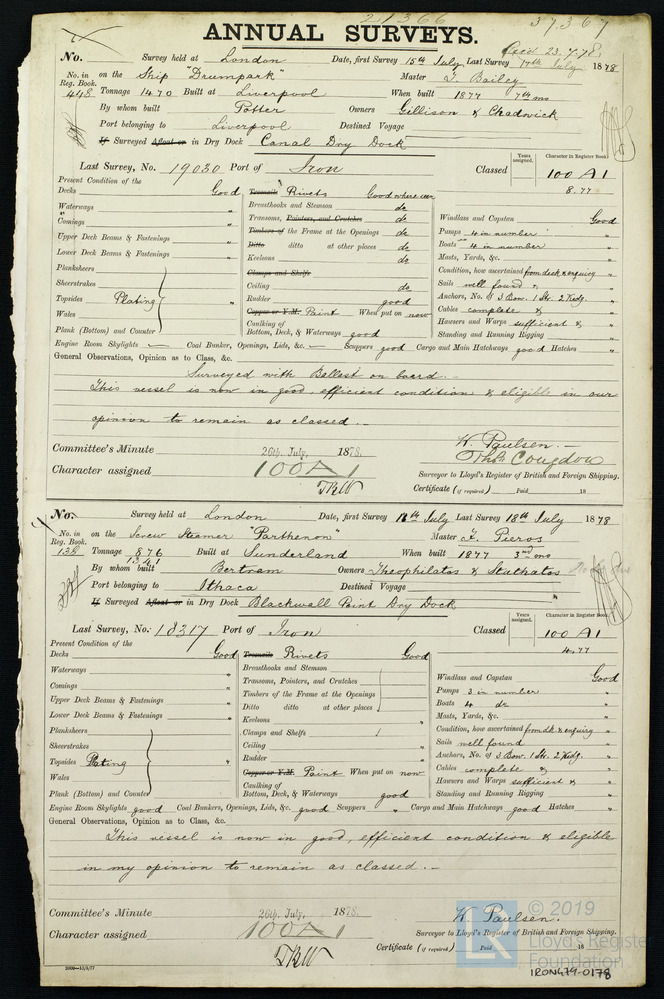 21366 37367
ANNUAL SURVEYS.
No. Survey held at London Date, first Survey 15th July Last Survey 17th July 1878
No. in Reg. Book. 448 on the Ship "Drumpark" Master J. Bailey
Tonnage 1470 Built at Liverpool When built 1877 7th mo
By whom built Potter Owners Gillison & Chadwick
Port belonging to Liverpool Destined Voyage
If Surveyed Afloat or in Dry Dock Canal Dry Dock
Last Survey, No. 19030 Port of Iron Classed Years assigned. Character in Register Book. 100 A1
8.77
Present Condition of the
Decks Good Treenails Rivets Good where seen
Waterways " Breasthooks and Stemson do
Comings " Transoms, Pointers, and Crutches do Windlass and Capstan Good
Upper Deck Beams & Fastenings " Timbers of the Frame at the Openings do Pumps 4 in number "
Lower Deck Beams & Fastenings " Ditto ditto at other places do Boats 4 in number "
Keelsons do Masts, Yards, &c. "
Planksheers Clamps and Shelfs Condition, how ascertained from deck & enquiry "
Sheerstrakes Ceiling do Sails well found &
Topsides Plating " Rudder good Anchors, No. of 3 Bow. 1 Str. 2 Kedg. "
Wales Copper or Y.M. Paint When put on now Cables complete & "
Plank (Bottom) and Counter Caulking of Bottom, Deck, & Waterways good Hawsers and Warps sufficient & "
Standing and Running Rigging "
Engine Room Skylights — Coal Bunker, Openings, Lids, &c. — Scuppers good Cargo and Main Hatchways good Hatches "
General Observations, Opinion as to Class, &c.
Surveyed with Ballast on board. —
This vessel is now in good, efficient condition & eligible in our
opinion to remain as classed. —
W. Paulsen. —
Committee's Minute 26th July, 1878. Thos Congdon
Character assigned 100 A 1 Surveyor to Lloyd's Register of British and Foreign Shipping.
Certificate (if required) Paid 18
No. Survey held at London Date, first Survey 18th July Last Survey 18th July 1878
No. in Reg. Book. 138 on the Screw Steamer "Parthenon" Master F. Pieros
Tonnage 876 1341 Built at Sunderland When built 1877 3rd mo
By whom built Bertram Owners Theophilatos & Stathatos
Port belonging to Ithaca Destined Voyage
If Surveyed Afloat or in Dry Dock Blackwall Point Dry Dock
Last Survey, No. 18317 Port of Iron Classed Years assigned. Character in Register Book. 100 A1
4.77
Present Condition of the
Decks Good Treenails Rivets Good
Waterways Breasthooks and Stemson Windlass and Capstan Good
Comings Transoms, Pointers, and Crutches Pumps 3 in number "
Upper Deck Beams & Fastenings " Timbers of the Frame at the Openings Boats 4 do "
Lower Deck Beams & Fastenings " Ditto ditto at other places Masts, Yards, &c. "
Keelsons "
Planksheers Clamps and Shelfs Condition, how ascertained from dk & enquiry "
Sheerstrakes Ceiling " Sails well found "
Topsides Plating Rudder " Anchors, No. of 3 Bow. 1 Str. 2 Kedg. "
Wales Copper or Y.M. Paint When put on now Cables complete & "
Plank (Bottom) and Counter Caulking of Bottom, Deck, & Waterways good Hawsers and Warps sufficient & "
Standing and Running Rigging "
Engine Room Skylights good Coal Bunkers, Openings, Lids, &c. good Scuppers " Cargo and Main Hatchways good Hatches "
General Observations, Opinion as to Class, &c.
This vessel is now in good, efficient condition & eligible
in my opinion to remain as classed. —
Committee's Minute 26th July, 1878. W. Paulsen.
Character assigned 100 A 1 Surveyor to Lloyd's Register of British and Foreign Shipping.
Certificate (if required) Paid 18
© 2019
Lloyd's Register
Foundation
IRON479-0178